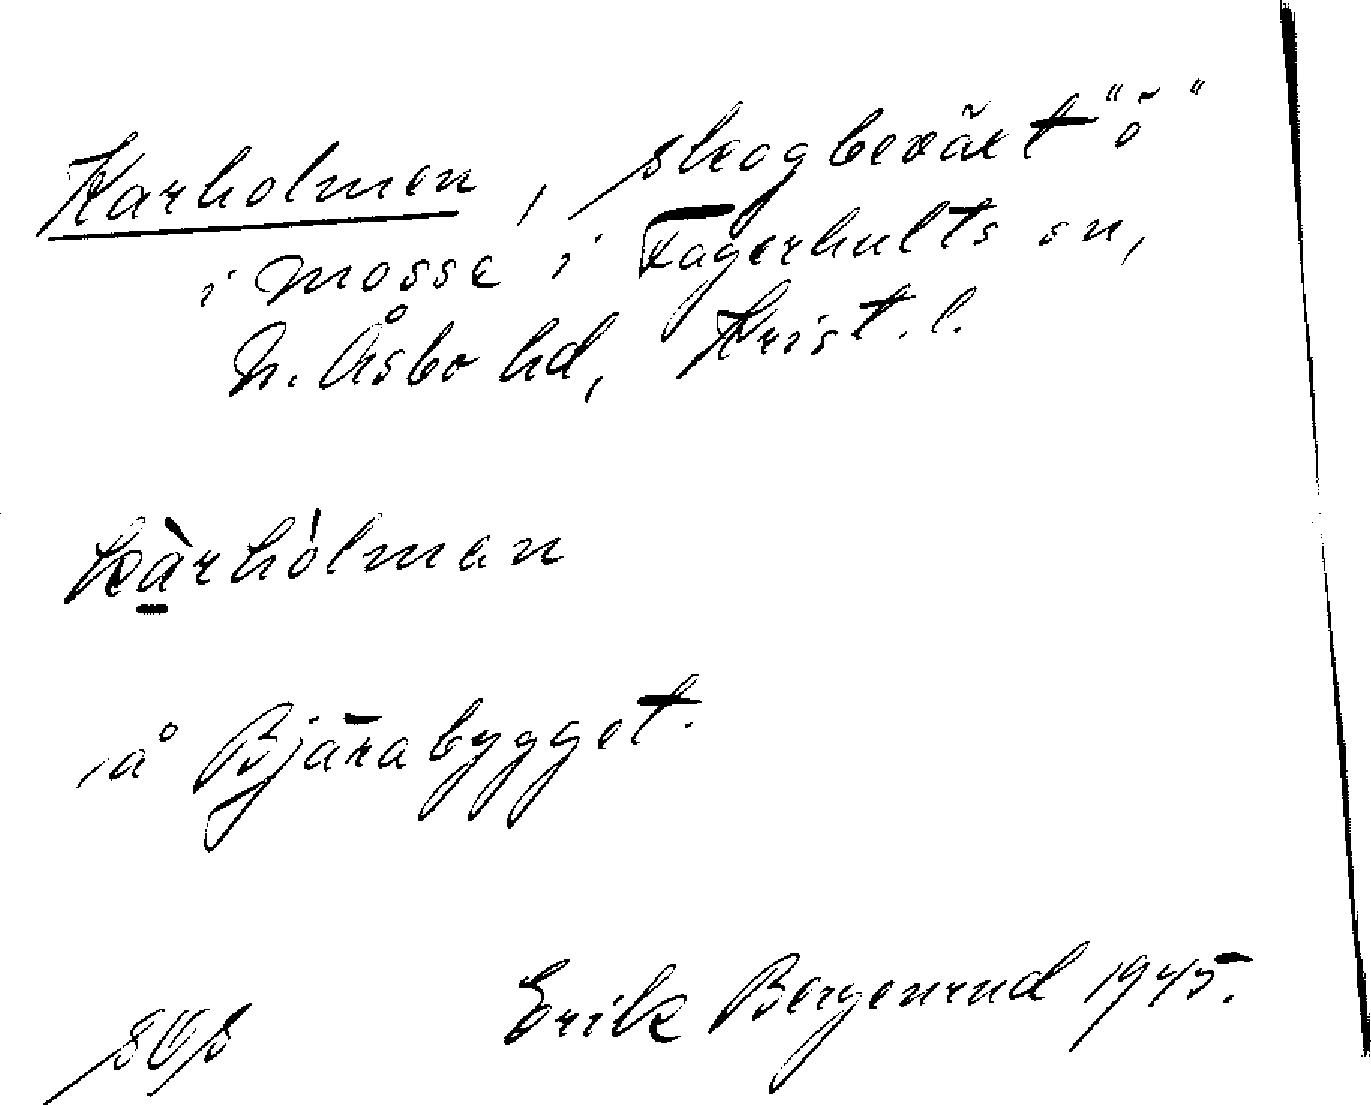 Karholmen, skogbeväxt "ö"
i mosse i Fagerhults sn,
N. Åsbo hd, Krist. l.
kàrhólman
å Bjärabygget.
Erik Bergenrud 1945.